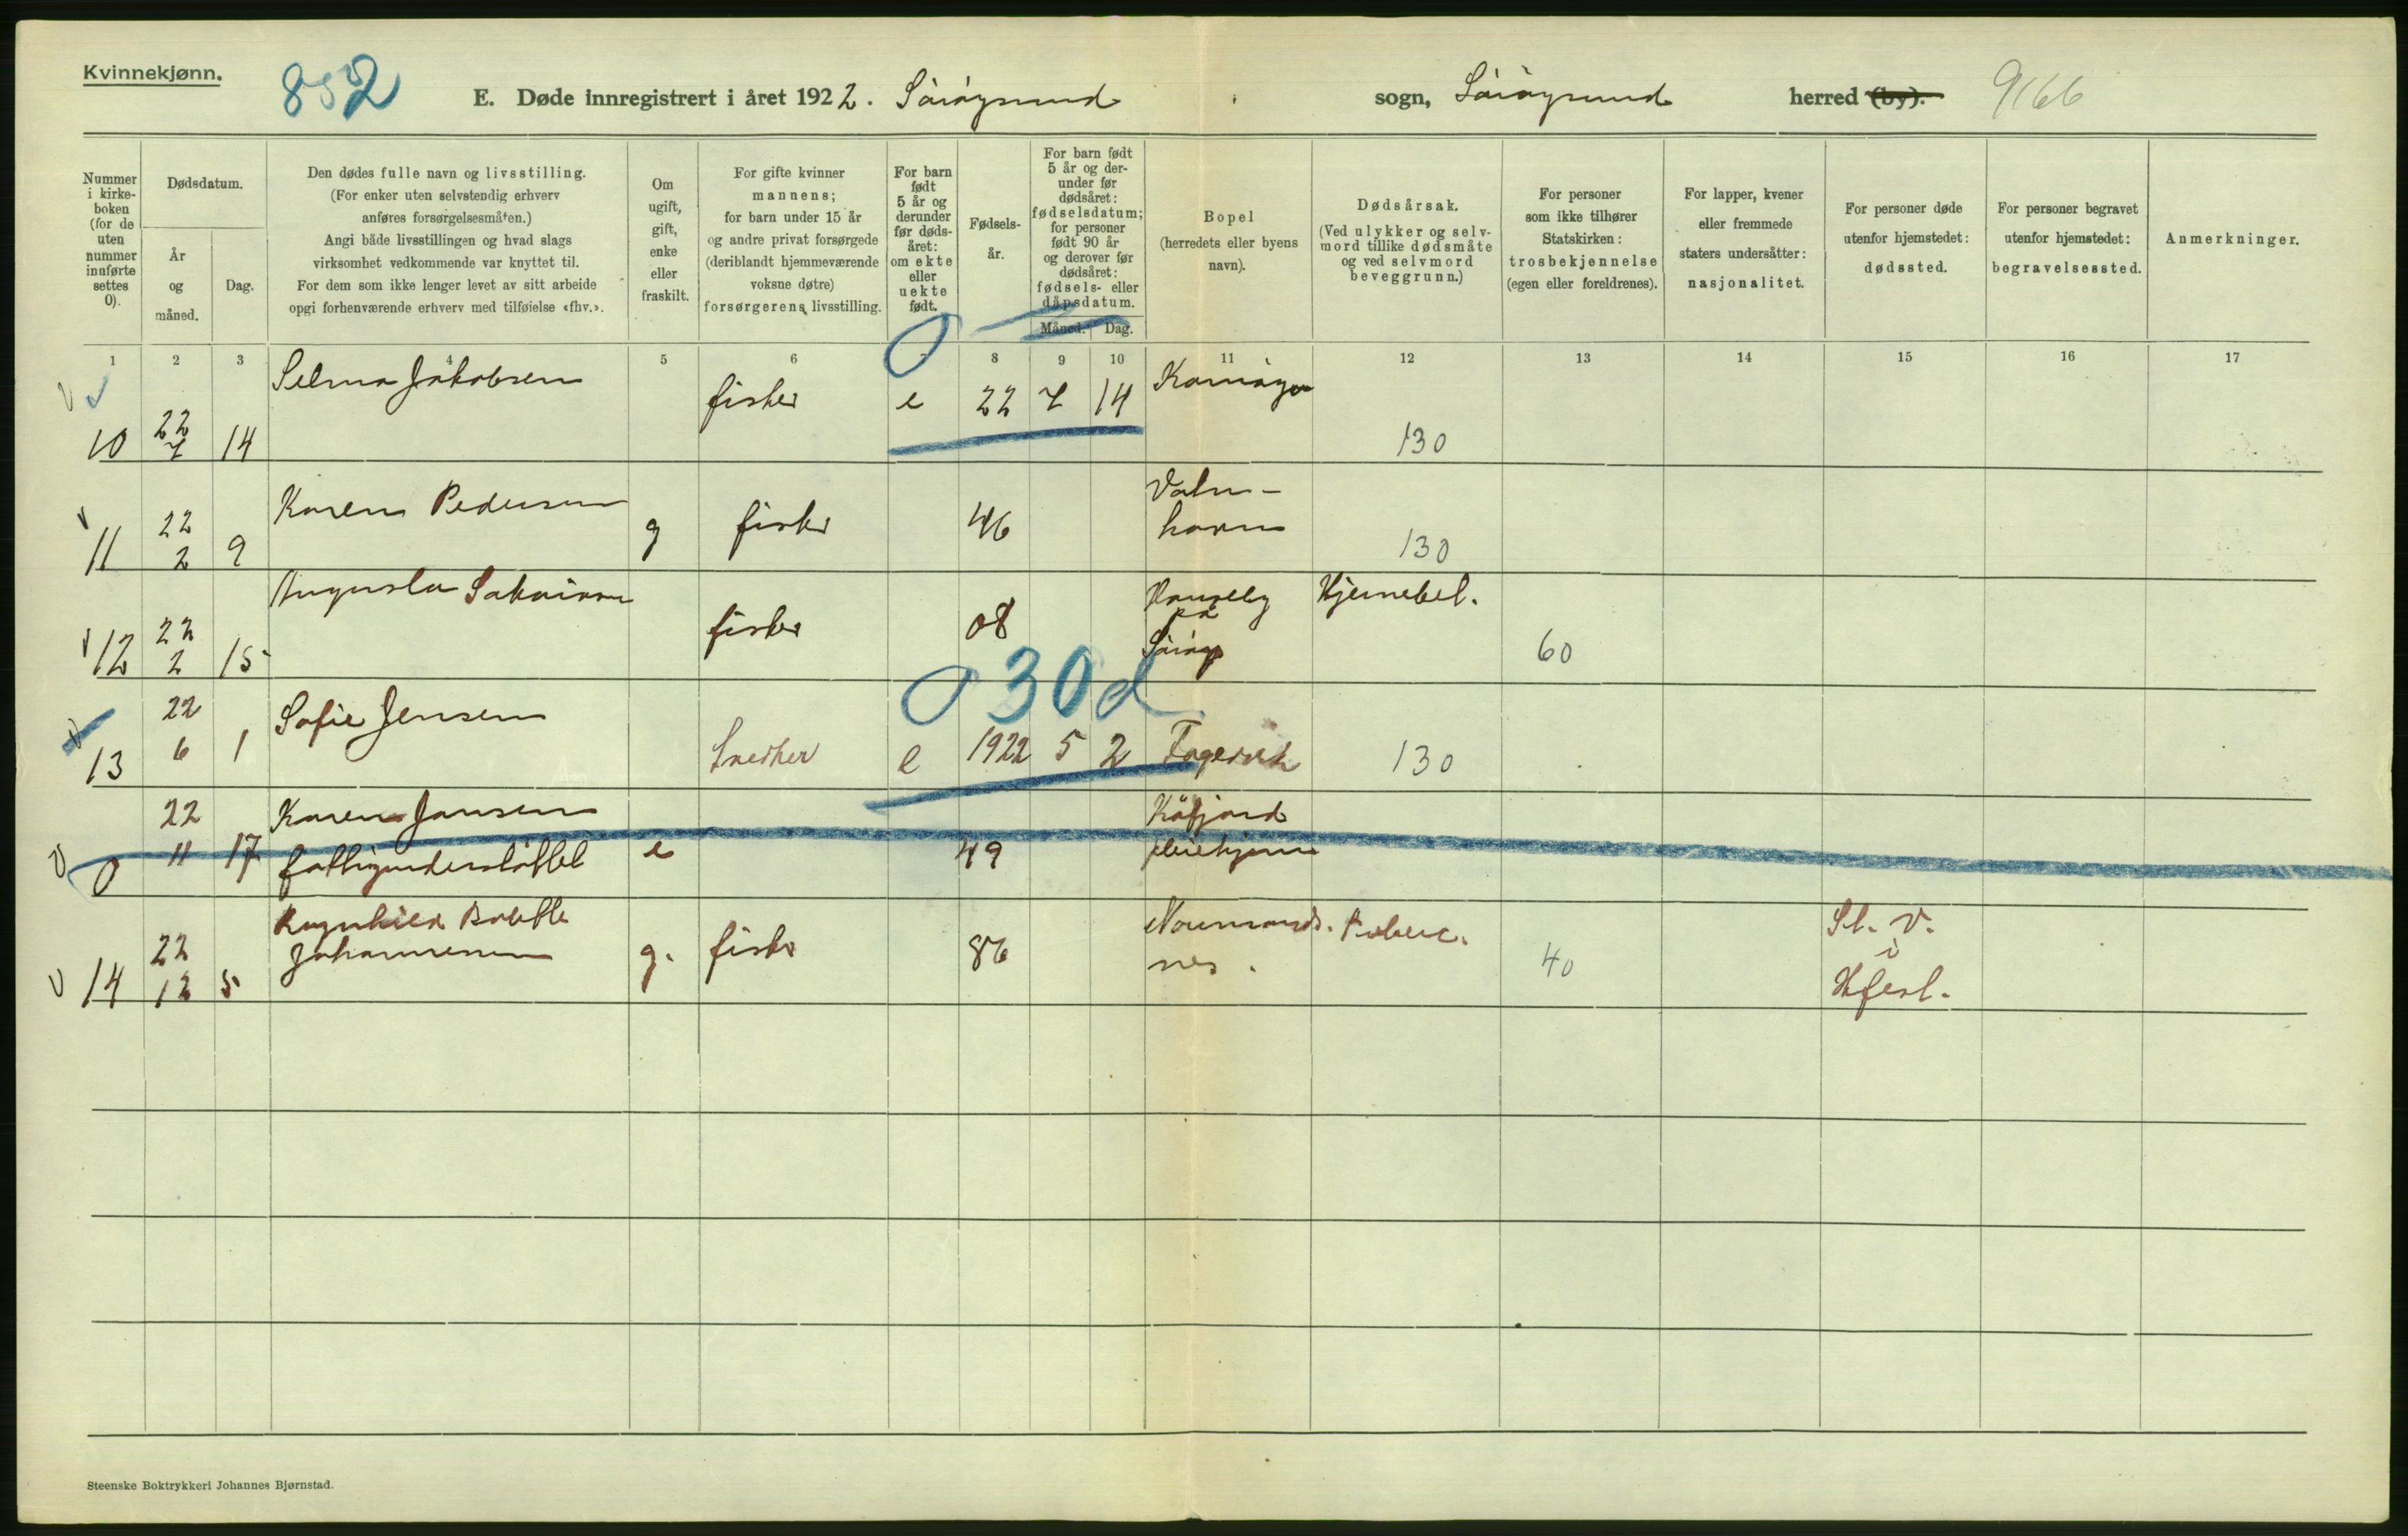 Kvinnekjønn.
852
E. Døde innregistrert i året 1922. Sørøysund sogn, Sørøysund herred (by). 9166
Nummer i kirkeboken (for de uten nummer innførte settes 0).
Dødsdatum.
År og måned.
Dag.
Den dødes fulle navn og livsstilling.
(For enker uten selvstendig erhverv anføres forsørgelsesmåten.)
Angi både livsstillingen og hvad slags virksomhet vedkommende var knyttet til.
For dem som ikke lenger levet av sitt arbeide opgi forhenværende erhverv med tilføielse «fhv.».
Om ugift, gift, enke eller fraskilt.
For gifte kvinner mannens; for barn under 15 år og andre privat forsørgede (deriblandt hjemmeværende voksne døtre) forsørgerens livsstilling.
For barn født 5 år og derunder før dødsåret: om ekte eller uekte født.
Fødselsår.
For barn født 5 år og derunder før dødsåret: fødselsdatum; for personer født 90 år og derover før dødsåret: fødsels- eller dåpsdatum.
Måned. Dag.
Bopel (herredets eller byens navn).
Dødsårsak.
(Ved ulykker og selvmord tillike dødsmåte og ved selvmord beveggrunn.)
For personer som ikke tilhører Statskirken: trosbekjennelse (egen eller foreldrenes).
For lapper, kvener eller fremmede staters undersåtter: nasjonalitet.
For personer døde utenfor hjemstedet: dødssted.
For personer begravet utenfor hjemstedet: begravelsessted.
Anmerkninger.
1 2 3 4 5 6 8 9 10 11 12 13 14 15 16 17
10 22 14 Selma Jakobsen fisker e 22 14 Kamøyen 130
11 22 2 9 Karen Pedersen g fisker 46 havn 130
12 22 2 15 Augusta fisker 08 på Sørøy Hjernebet. 60
0 30d
13 22 6 1 Sofie Jensen Snedker e 1922 5 2 Fagervik 130
0 22 11 17 Karen Jansen fattigunderstøttet e 49 Kåfjord pleiehjem
14 22 12 5 Ragnhild Johannesen g. fisker 86 Normandsnes. Tuberc. 40 St. V. i Hfest.
Steenske Boktrykkeri Johannes Bjørnstad.